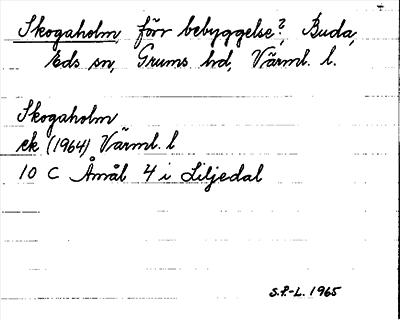 Skogaholm, förr bebyggelse?, Buda,
Eds sn, Grums hd, Värml. l.
Skogaholm
ek (1964) Värml. l
10 C Åmål 4 i Liljedal
S.P.-L. 1965